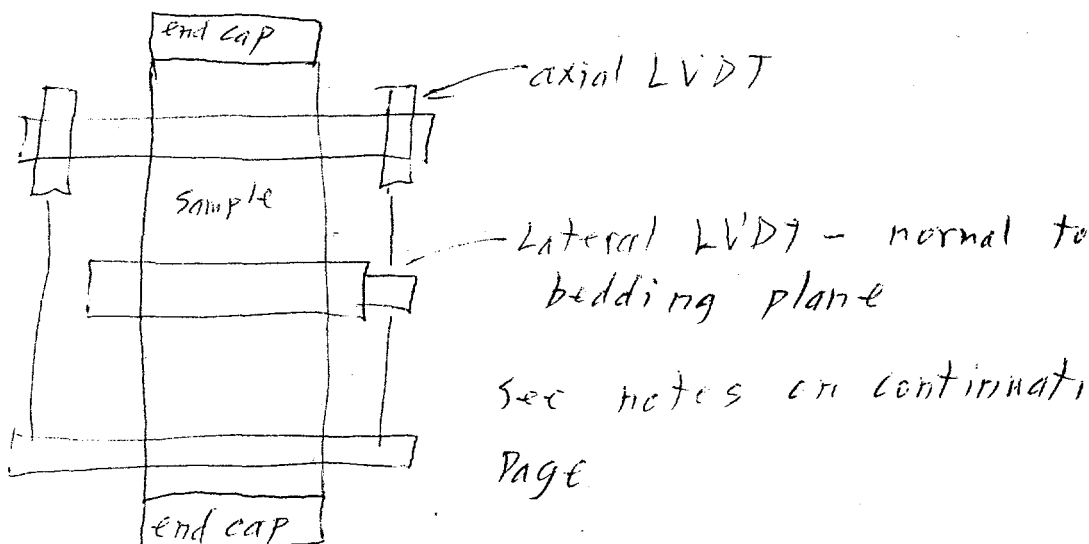 end cap
axial LVDT
sample
Lateral LVDT - normal to
bedding plane
See notes on continuati
Page
end cap